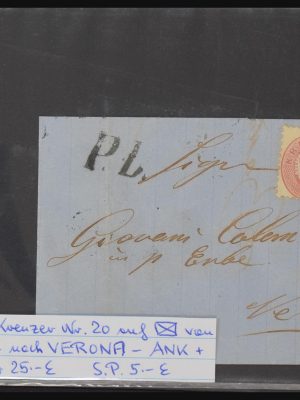 P.L.
Sigr
Giovani Colem
in p Erbe
Ve
Kreuzer Nr. 20 auf von
nach VERONA - ANK +
25.-€ S.P. 5.-€